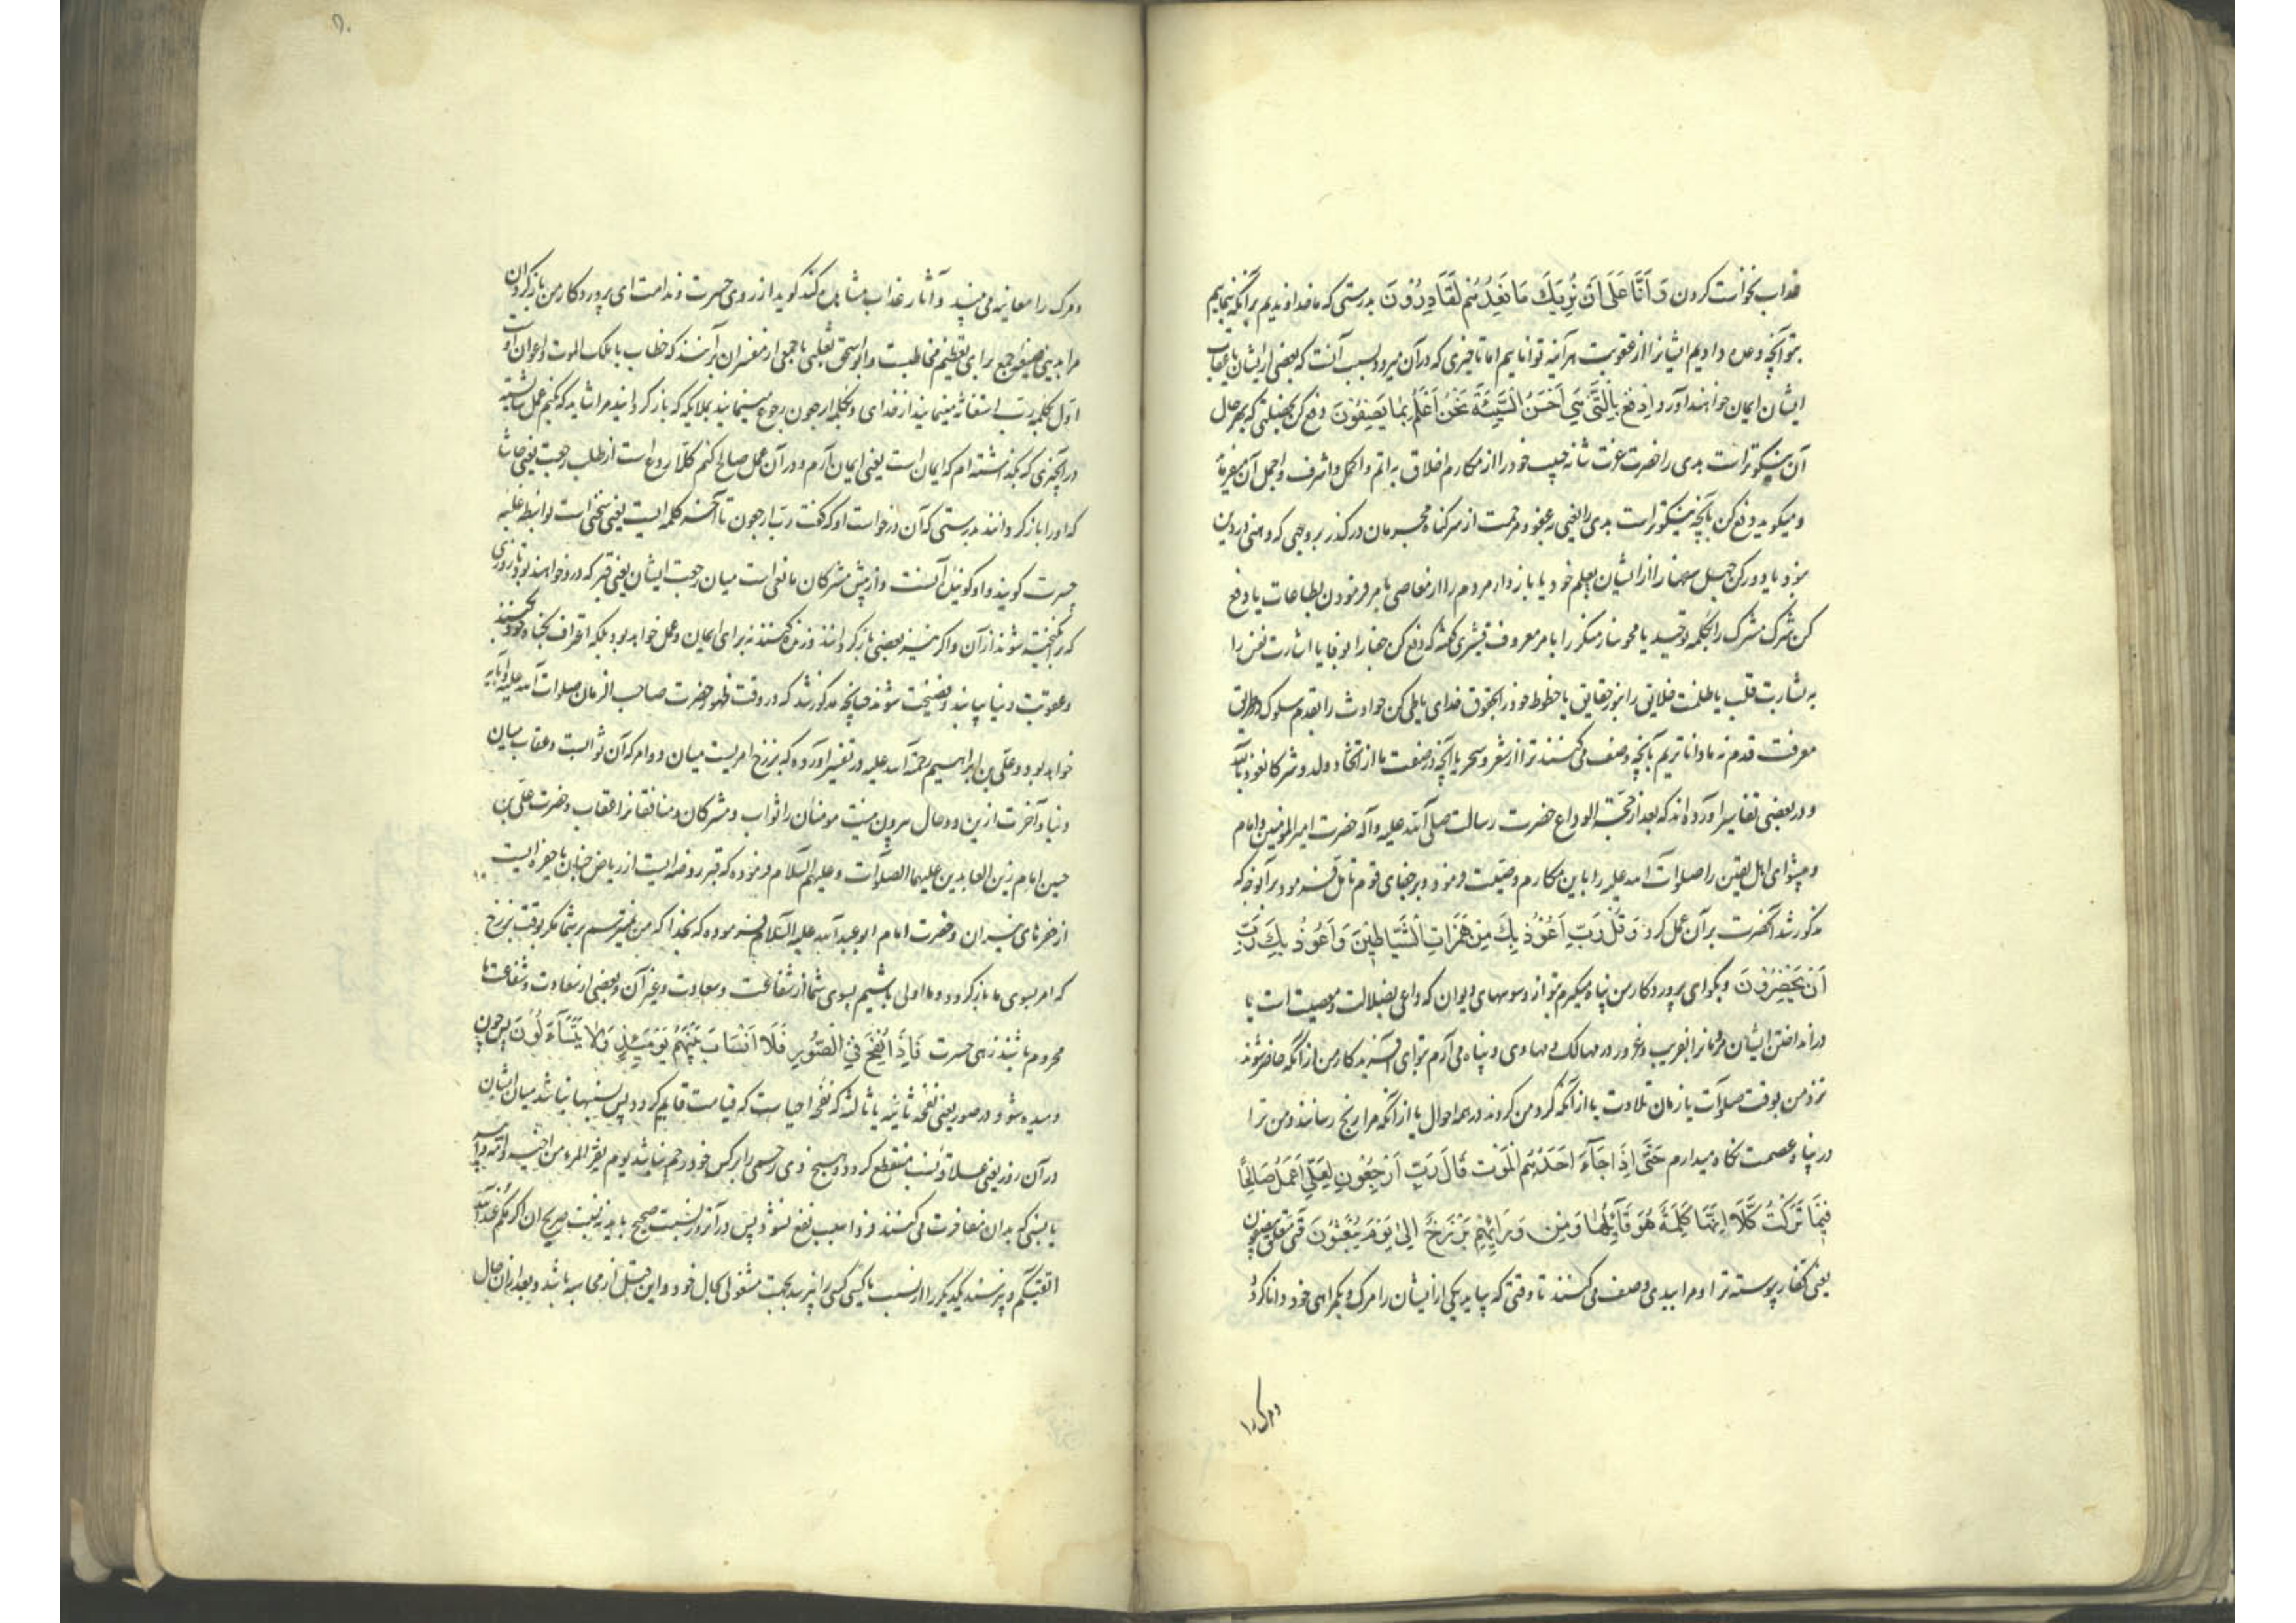 عذاب نخواست کردن وَ اَنَّا عَلَی اَنْ نُرِیَكَ مَا نَعِدُهُمْ لَقَادِرُوْنَ بدرستی که ما خداوندیم بر آنکه بنماییم
بتو آنچه وعده دادیم ایشانرا از عقوبت هر آینه تواناییم اما تاخیری که در آن میرود بسبب آنست که بعضی از ایشان یا اعقاب
ایشان ایمان خواهند آورد اِدْفَعْ بِالَّتِي هِيَ اَحْسَنُ السَّيِّئَةَ نَحْنُ اَعْلَمُ بِمَا يَصِفُوْنَ دفع کن بخصلتی که بهر حال
آن نیکوتر است بدی را حضرت عزت شانه حبیب خود را از مکارم اخلاق به اتم و اکمل و اشرف و اجمل آن میفرماید
و میگوید دفع کن بآنچه نیکوتر است بدی را یعنی به عفو و مرحمت از سر کناه مجرمان در کذر بر وجهی که وهنی در دین
نبود یا دور کن جهل سفها را از ایشان بحلم خود یا باز دار مردم را از معاصی بامر فرمودن بطاعات یا دفع
کن شرک مشرک را بکلمه توحید یا محو ساز منکر را بامر معروف قشیری گفته که دفع کن جفا را بوفا یا اشارت نفس را
به بشارت قلب یا ظلمت خلایق را بنور حقایق یا حظوظ خود را بحقوق خدای یا طی کن حوادث را بقدم سلوک و در طریق
معرفت قدم نه ما داناتریم بآنچه وصف می کنند ترا از شعر و سحر یا آنچه در صفت ما از اتخاذ ولد و شرکا نعوذ بالله
و در بعضی تفاسیر آورده اند که بعد از حجة الوداع حضرت رسالت صلی الله علیه وآله حضرت امیر المؤمنین و امام
و پیشوای اهل یقین را صلوات الله علیه را باین مکارم وصیت فرمود و بر جفای قوم تامل فرمود بر آنوجه که
مذکور شد آنحضرت بر آن عمل کرد وَ قُلْ رَبِّ اَعُوْذُ بِكَ مِنْ هَمَزَاتِ الشَّيَاطِيْنَ وَ اَعُوْذُ بِكَ رَبِّ
اَنْ يَحْضُرُوْنَ و بگو ای پروردکار من پناه میگیرم بتو از وسوسهای دیوان که داعی بضلالت و معصیت است یا
در انداختن ایشان مردمانرا بفریب و غرور در مهالک و مهاوی و پناه می آرم بتو ای آفریدکار من از آنکه حاضر شوند
نزد من بوقت صلوات یا زمان تلاوت یا از آنکه گرد من گردند در همه احوال یا از آنکه مرا رنج رسانند و من ترا
در پناه عصمت نگاه میدارم حَتَّی اِذَا جَآءَ اَحَدَهُمُ الْمَوْتُ قَالَ رَبِّ ارْجِعُوْنِ لَعَلِّي اَعْمَلُ صَالِحًا
فِيْمَا تَرَكْتُ كَلَّا اِنَّهَا كَلِمَةٌ هُوَ قَآئِلُهَا وَ مِنْ وَرَآئِهِمْ بَرْزَخٌ اِلَی يَوْمِ يُبْعَثُوْنَ حتی متعلق بیصفون
یعنی کفار پیوسته ترا و مرا ببدی وصف می کنند تا وقتی که بیاید یکی از ایشان را مرک و بگمراهی خود دانا گردد
و مرک را
و مرک را معاینه می بیند و آثار عذاب مشاهده کند کوید از روی حسرت و ندامت ای پروردکار من باز گردان
مرا بدنیا صیغه جمع برای تعظیم مخاطبست و ابو اسحق ثعلبی با جمعی از مفسران بر آنند که خطاب با ملک الموت و اعوان او است
اول بکلمه رب استغاثه مینمایند از خدای و بکلمه ارجعون رجوع مینمایند بملایکه که باز گردانید مرا شاید که بکنم عمل شایسته
در آنچیزی که بگذاشته ام که ایمان است یعنی ایمان آرم و در آن عمل صالح کنم کلا ردع است از طلب رجعت یعنی حاشا
که او را باز گردانند بدرستی که آن درخواست او که گفت رب ارجعون تا آخر کلمه ایست یعنی سخنی است بواسطه غلبه
حسرت کویند و او کوینده آنست و از پیش مشرکان مانعی است میان رجعت ایشان یعنی قبر که در و خواهند بود تا روزی
که برانگیخته شوند از آن و اگر نیز بعضی باز گردانند و زنده کنند نه برای ایمان و عمل خواهد بود بلکه اعتراف بگناه خود کنند
و عقوبت دنیا بیابند و فضیحت شوند چنانچه مذکور شد که در وقت ظهور حضرت صاحب الزمان صلوات الله علیه و آبائه
خواهد بود و علی بن ابراهیم رحمة الله علیه در تفسیر آورده که برزخ امریست میان دو امر که آن ثوابست و عقاب میان
دنیا و آخرت ازین دو حال بیرون نیست مومنان را ثواب و مشرکان و منافقانرا عقاب و حضرت علی بن
حسین امام زین العابدین علیهما الصلوات و علیهم السلام فرموده که قبر روضه ایست از ریاض جنان یا حفره ایست
از حفرهای نیران و حضرت امام ابو عبد الله علیه السلام فرموده که بخدا که من نمیترسم بر شما مکر بوقت برزخ
که امر بسوی ما باز گردد و ما اولی باشیم بسوی شما از شفاعت و سعادت و غیر آن و بعضی از سعادت و شفاعت ما
محروم باشند زهی حسرت فَاِذَا نُفِخَ فِي الصُّوْرِ فَلَا اَنْسَابَ بَيْنَهُمْ يَوْمَئِذٍ وَلَا يَتَسَآءَلُوْنَ پس چون
دمیده شود در صور یعنی نفخه ثانیه یا ثالثه که نفخه احیاست که قیامت قایم گردد پس نسبها نباشد میان ایشان
در آن روز یعنی علاقه نسب منقطع گردد و هیچ ذی رحمی را بر کس خود رحم نباشد یوم یفر المرء من اخیه و امه و ابیه
یا نسبی که بدان مفاخرت می کنند فردا سبب نفع نشود پس در آنروز نسبت صحیح باید نه نسبت صریح ان اکرمکم عند الله
اتقیکم و نپرسند یکدیگر را از نسب یا کسی کسی را نپرسد بجهت مشغولی بحال خود و این قبل از محاسبه باشد و بعد از آن حال